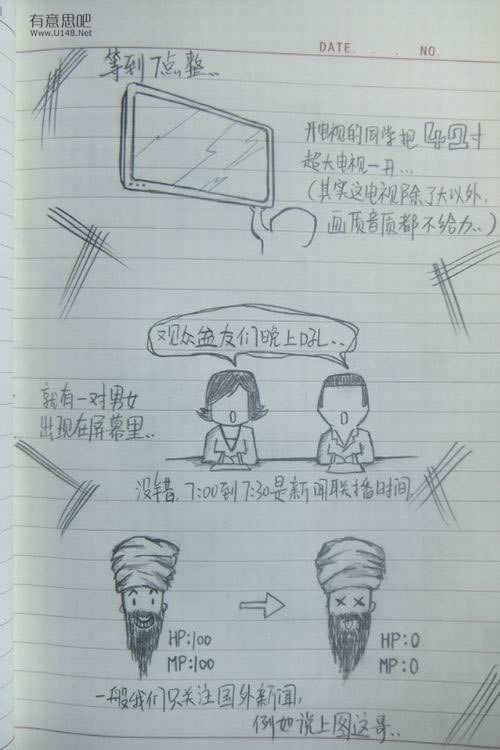 有意思吧
www.U148.Net
DATE. . . NO.
等到7点整..
开电视的同学把 42寸
超大电视一开...
(其实这电视除了大以外,
画质音质都不给力..)
观众盆友们晚上好..
就有一对男女
出现在屏幕里..
没错, 7:00到7:30是新闻联播时间.
HP:100
MP:100
HP:0
MP:0
一般我们只关注国外新闻,
例如说上图这哥..